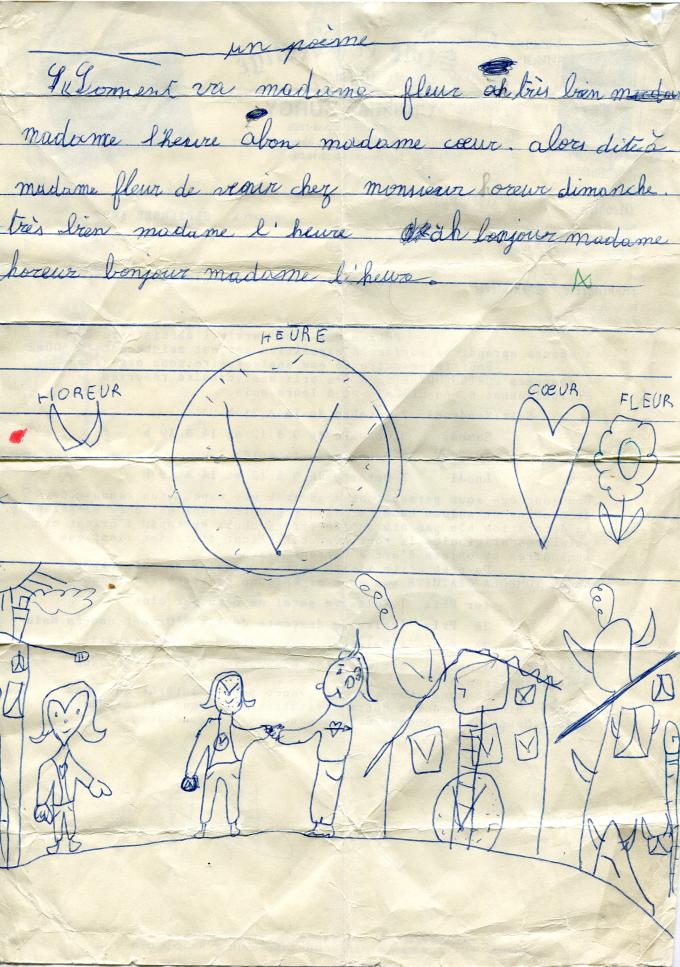 un poème
Coment va madame fleur ah très bien
madame l'heure abon madame cœur. alors dite à
madame fleur de venir chez monsieur horeur dimanche.
très bien madame l'heure ah bonjour madame
horeur bonjour madame l'heure.
HEURE
HOREUR
CŒUR
FLEUR